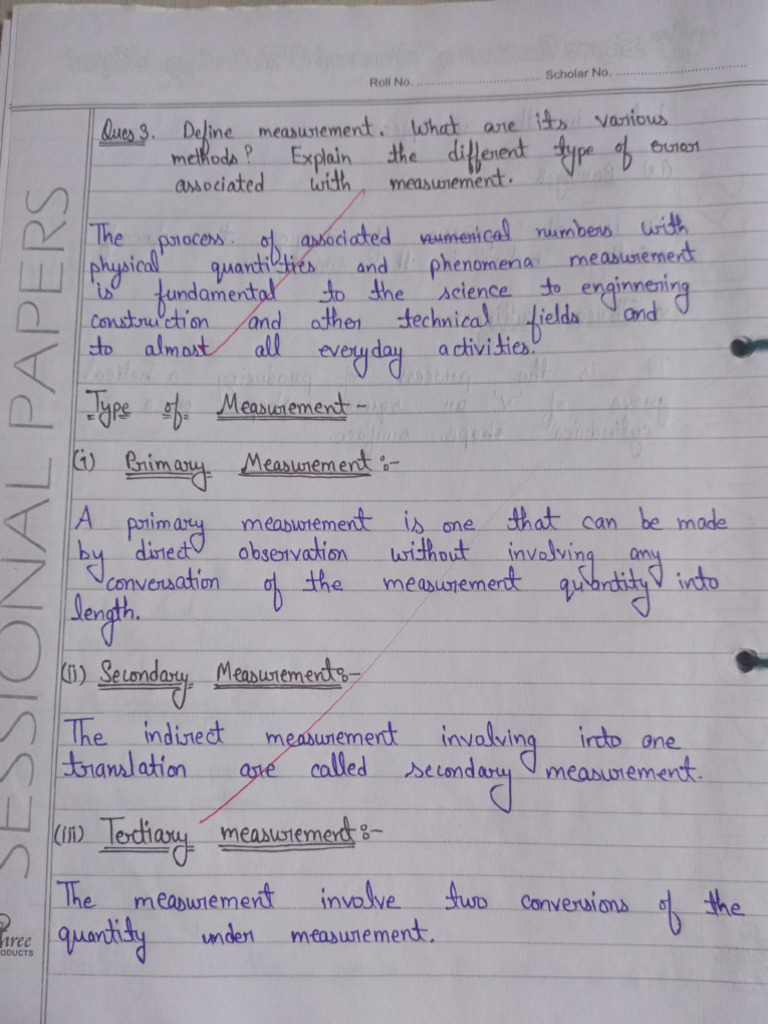 Roll No. ........................................ Scholar No. ........................................
Ques 3. Define measurement. What are its various
methods? Explain the different type of error
associated with measurement.
The process of associated numerical numbers with
physical quantities and phenomena measurement
is fundamental to the science to enginnering
construction and other technical fields and
to almost all everyday activities.
Type of Measurement -
(i) Primary Measurement :-
A primary measurement is one that can be made
by direct observation without involving any
conversation of the measurement quantity into
length.
(ii) Secondary Measurement :-
The indirect measurement involving into one
translation are called secondary measurement.
(iii) Tertiary measurement :-
The measurement involve two conversions of the
quantity under measurement.
SESSIONAL PAPERS
Three
PRODUCTS